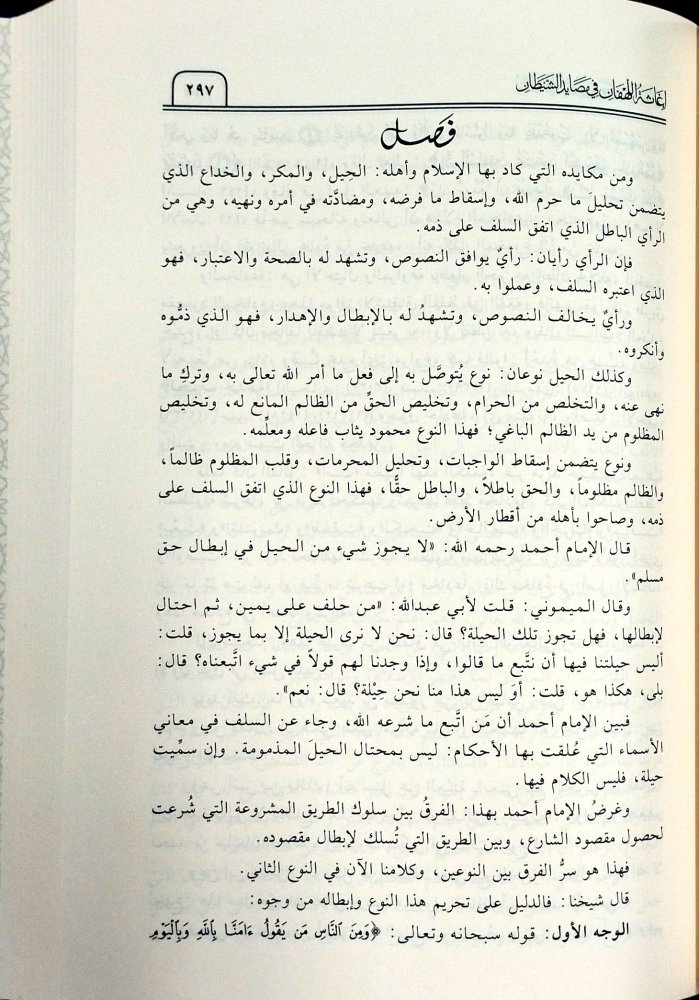 إغاثة اللهفان في مصايد الشيطان
٢٩٧
فصل
ومن مكايده التي كاد بها الإسلام وأهله: الحِيل، والمكر، والخداع الذي
يتضمن تحليل ما حرم الله، وإسقاط ما فرضه، ومضادَّته في أمره ونهيه، وهي من
الرأي الباطل الذي اتفق السلف على ذمه.
فإن الرأي رأيان: رأيٌ يوافق النصوص، وتشهد له بالصحة والاعتبار، فهو
الذي اعتبره السلف، وعملوا به.
ورأيٌ يخالف النصوص، وتشهدُ له بالإبطال والإهدار، فهو الذي ذمُّوه
وأنكروه.
وكذلك الحيل نوعان: نوع يُتوصَّل به إلى فعل ما أمر الله تعالى به، وتركِ ما
نهى عنه، والتخلص من الحرام، وتخليص الحقِّ من الظالم المانع له، وتخليص
المظلوم من يد الظالم الباغي؛ فهذا النوع محمود يثاب فاعله ومعلِّمه.
ونوع يتضمن إسقاط الواجبات، وتحليل المحرمات، وقلب المظلوم ظالماً،
والظالم مظلوماً، والحق باطلاً، والباطل حقًّا، فهذا النوع الذي اتفق السلف على
ذمه، وصاحوا بأهله من أقطار الأرض.
قال الإمام أحمد رحمه الله: «لا يجوز شيء من الحيل في إبطال حق
مسلم».
وقال الميموني: قلت لأبي عبدالله: «من حلف على يمين، ثم احتال
لإبطالها، فهل تجوز تلك الحيلة؟ قال: نحن لا نرى الحيلة إلا بما يجوز، قلت:
أليس حيلتنا فيها أن نتَّبع ما قالوا، وإذا وجدنا لهم قولاً في شيء اتَّبعناه؟ قال:
بلى، هكذا هو، قلت: أوَ ليس هذا منا نحن حِيْلة؟ قال: نعم».
فبين الإمام أحمد أن مَن اتَّبع ما شرعه الله، وجاء عن السلف في معاني
الأسماء التي عُلقت بها الأحكام: ليس بمحتال الحيلَ المذمومة. وإن سمِّيت
حيلة، فليس الكلام فيها.
وغرضُ الإمام أحمد بهذا: الفرقُ بين سلوك الطريق المشروعة التي شُرعت
لحصول مقصود الشارع، وبين الطريق التي تُسلك لإبطال مقصوده.
فهذا هو سرُّ الفرق بين النوعين، وكلامنا الآن في النوع الثاني.
قال شيخنا: فالدليل على تحريم هذا النوع وإبطاله من وجوه:
الوجه الأول: قوله سبحانه وتعالى: ﴿وَمِنَ ٱلنَّاسِ مَن يَقُولُ ءَامَنَّا بِٱللَّهِ وَبِٱلْيَوْمِ